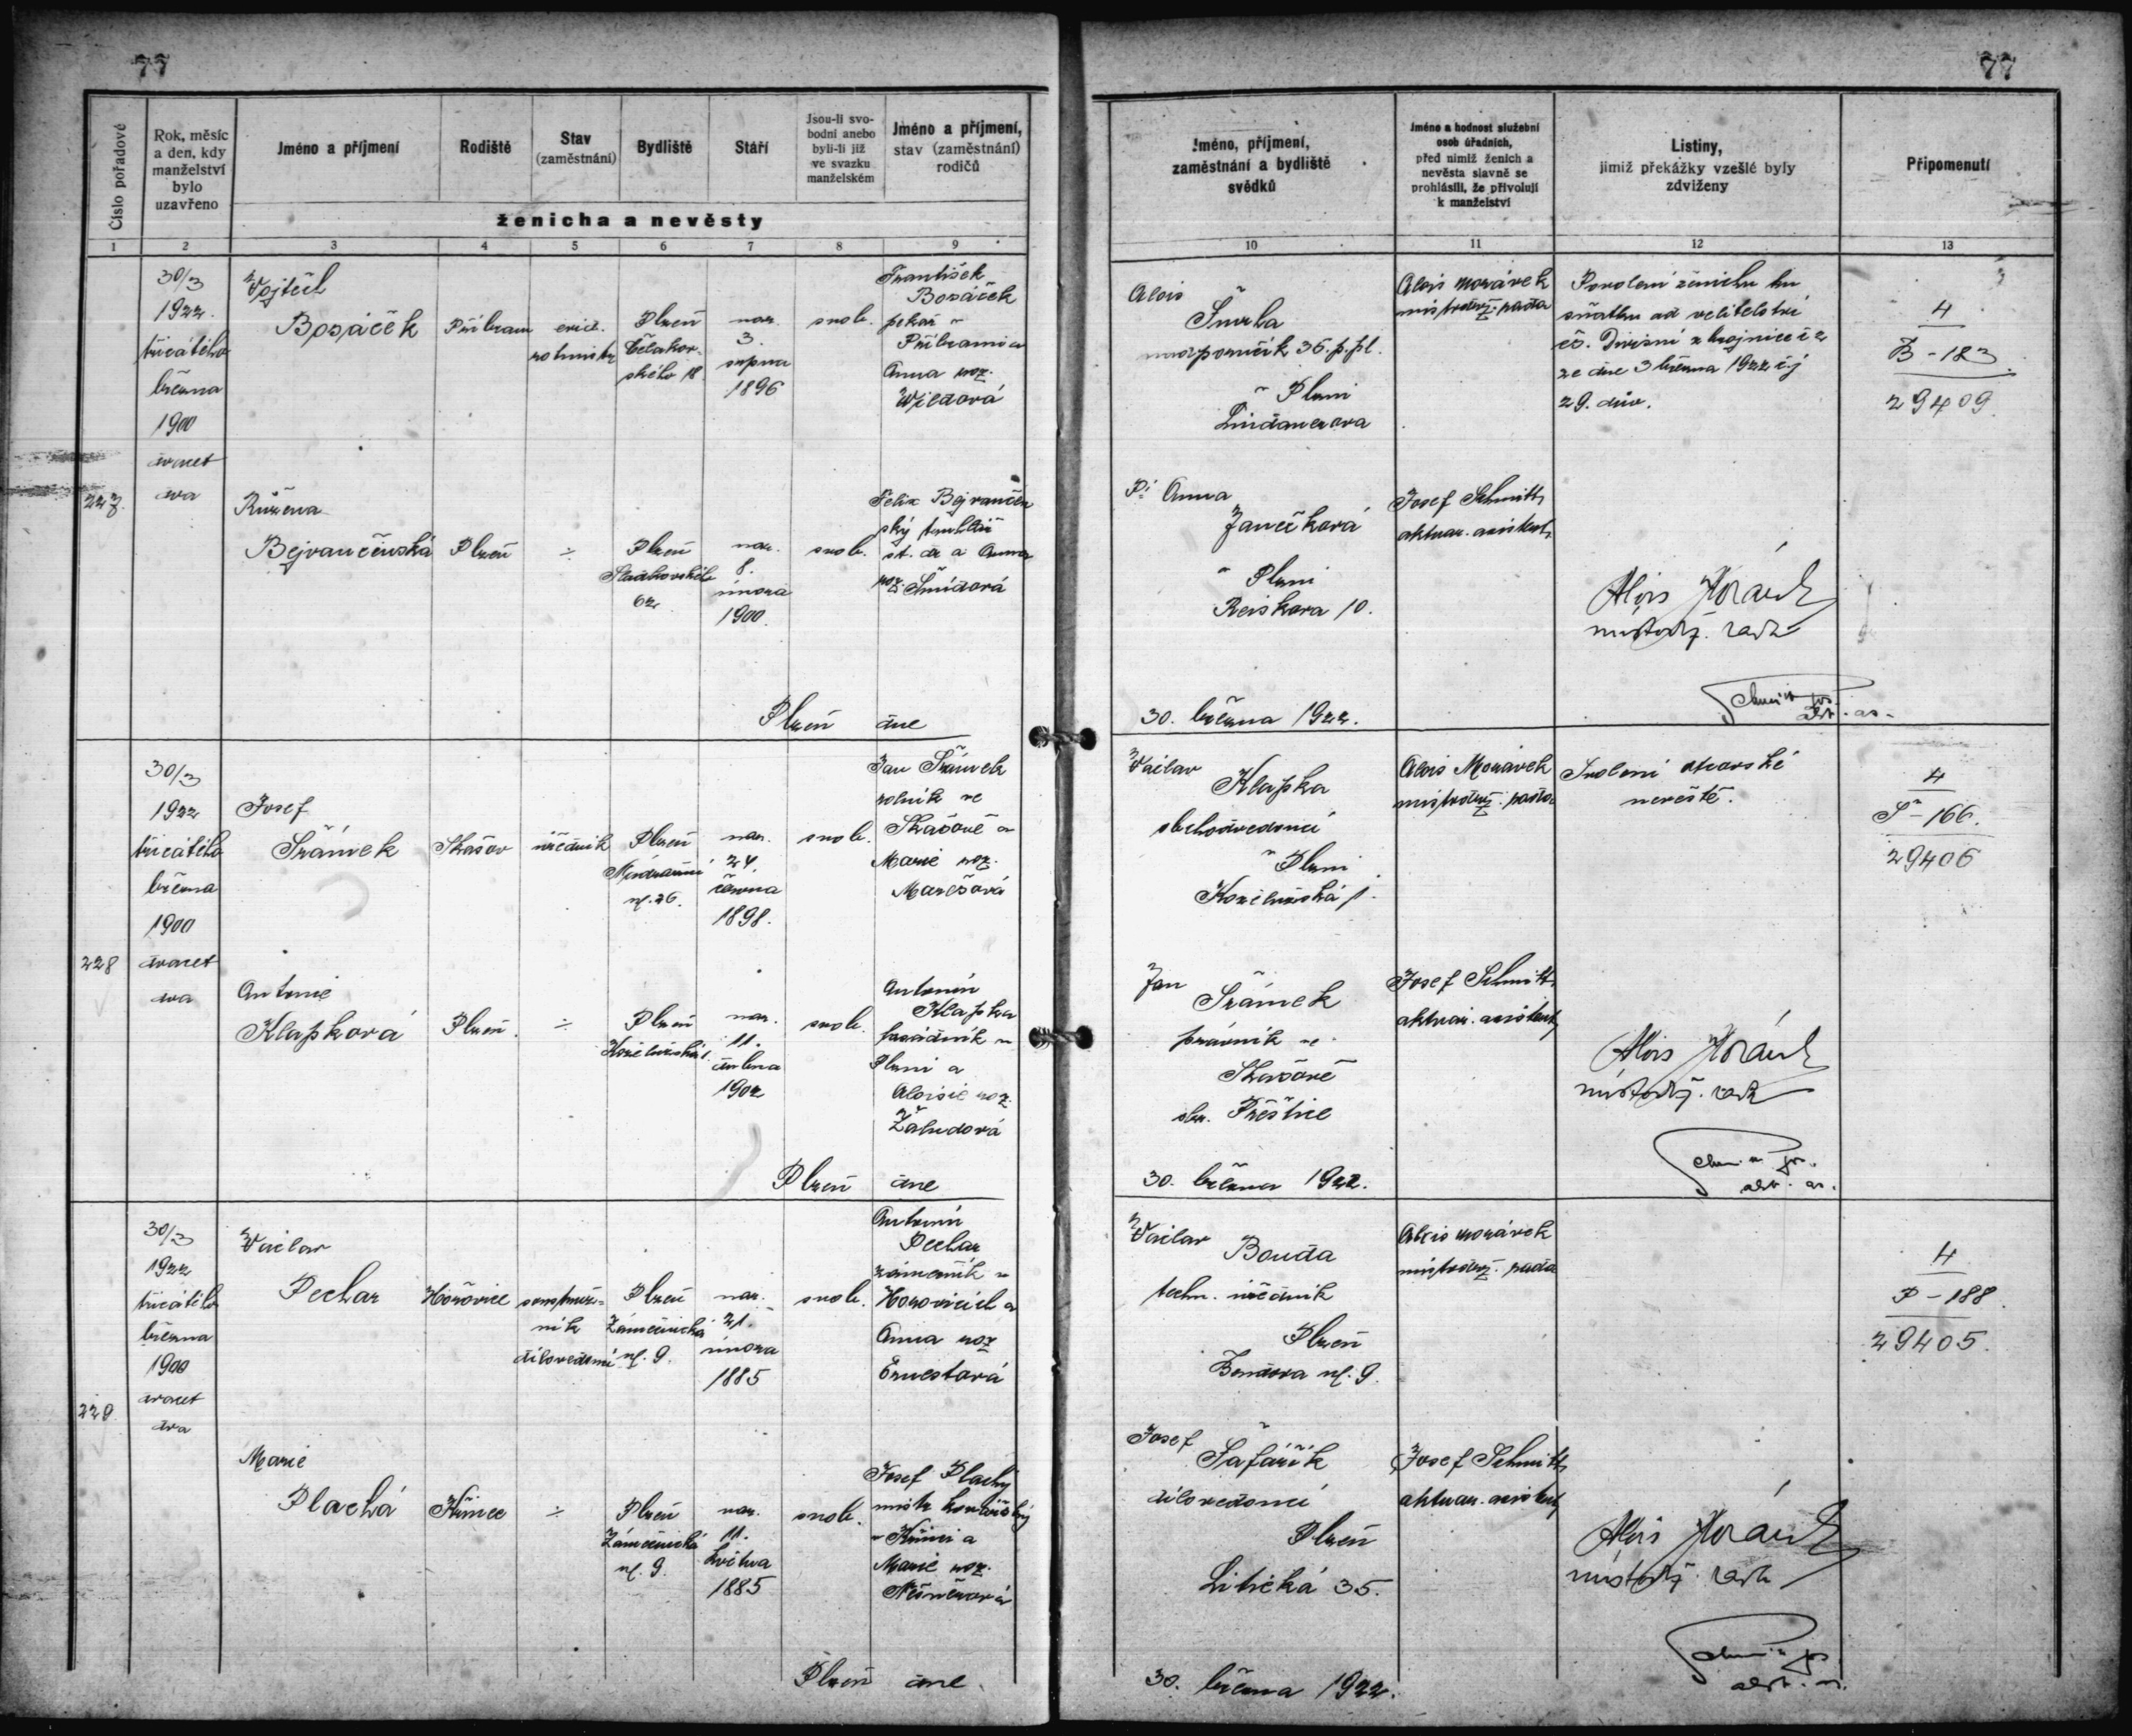 77
77
Číslo pořadové
Rok, měsíc
a den, kdy
manželství
bylo
uzavřeno
Jméno a příjmení
Rodiště
Stav
(zaměstnání)
Bydliště
Stáří
Jsou-li svo-
bodni anebo
byli-li již
ve svazku
manželském
Jméno a příjmení,
stav (zaměstnání)
rodičů
ženicha a nevěsty
1 2 3 4 5 6 7 8 9
Jméno, příjmení,
zaměstnání a bydliště
svědků
Jméno a hodnost služební
osob úředních,
před nimiž ženich a
nevěsta slavně se
prohlásili, že přivolují
k manželství
Listiny,
jimiž překážky vzešlé byly
zdviženy
Připomenutí
10 11 12 13
227
30/3
1922.
třicátého
března
1900
dvacet
dva
Vojtěch
Bosáček
Příbram
rotmistr
Plzeň
Čelakov-
ského 18
nar.
3.
srpna
1896
svob.
František
Bosáček
pekař v
Příbrami a
Anna roz.
Wildová
Růžena
Bejvančínská
Plzeň
÷
Plzeň
Sladkovského
62
nar.
8.
února
1900.
svob.
Felix Bejvančín
ský truhlář
st. dr a Anna
roz. Šmídová
Plzeň dne
Alois
Šmrha
nadporučík 35. p. pl.
v Plzni
Lindauerova
Alois Morávek
místodrž. rada
Povolení ženichu ku
sňatku od velitelství
čs. Divisní
ze dne 3 března 1922 č.j
29. dův.
4
B - 183
29409.
Pí Anna
Janečková
v Plzni
Reiskova 10.
Josef Schmitt,
aktuar. asistent,
Alois Morávek
místodrž. rada
Schmitt Jos.
akt. as.
30. března 1922.
228
30/3
1922
třicátého
března
1900
dvacet
dva
Josef
Šrámek
Skašov
úředník
Plzeň
Nádražní
ul. 26.
nar.
24.
června
1898.
svob.
Jan Šrámek
rolník ve
Skašově a
Marie roz.
Marešová
Antonie
Klapková
Plzeň.
÷
Plzeň
Koželužská 1.
nar.
11.
dubna
1902
svob.
Antonín
Klapka
v
Plzni a
Aloisie roz.
Žaludová
Plzeň dne
Václav
Klapka
obchodvedoucí
v Plzni
Koželužská 1.
Alois Morávek
místodrž. rada
Svolení otcovské
nevěstě.
4
Š - 166.
29406
Jan
Šrámek
právník ve
Skašově
okr. Přeštice
Josef Schmitt,
aktuar. asistent,
Alois Morávek
místodrž. rada
Schmitt Jos.
akt. as.
30. března 1922.
229
30/3
1922
třicátého
března
1900
dvacet
dva
Václav
Pechar
Hořovice
soustruž-
ník
dílovedoucí
Plzeň
Zámečnická
ul. 9.
nar.
21.
února
1885
svob.
Antonín
Pechar
zámečník v
Hořovicích a
Anna roz
Ernestová
Marie
Plachá
Křimice
÷
Plzeň
Zámečnická
ul. 9.
nar.
11.
května
1885
svob.
Josef Plachý
mistr kovářský
a
Marie roz.
Plzeň dne
Václav
Bouda
techn. úředník
Plzeň
Bendova ul. 9.
Alois Morávek
místodrž. rada
4
P - 188.
29405.
Josef
Šafářík
dílovedoucí
Plzeň
Litická 35.
Josef Schmitt,
aktuar. asistent,
Alois Morávek
místodrž. rada
Schmitt Jos.
akt. as.
30. března 1922.